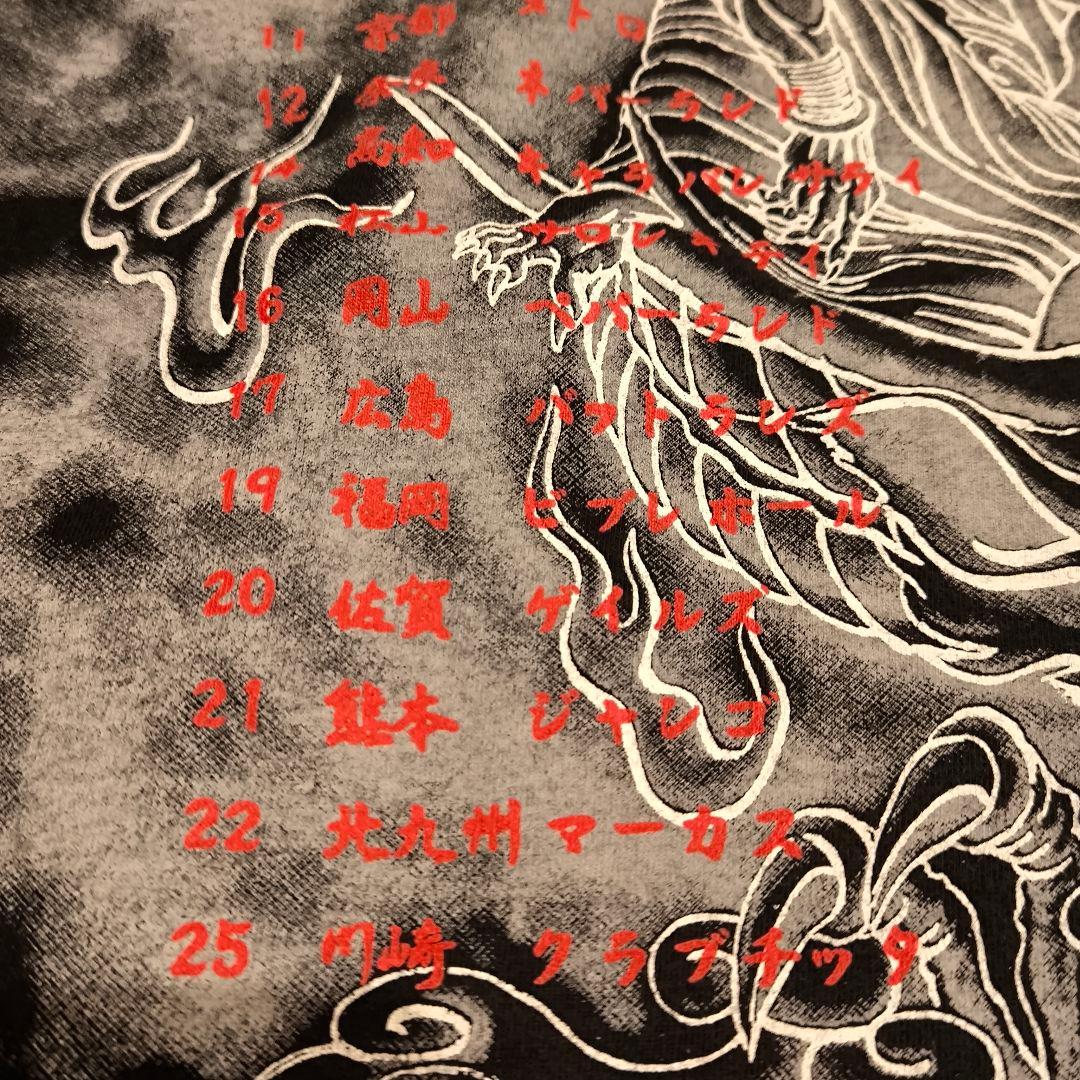 11 京都 ストロ
12 奈良 ネバーランド
14 高知 キャラバンサライ
15 松山 サロンキティ
16 岡山 ペパーランド
17 広島 バッドランズ
19 福岡 ビブレホール
20 佐賀 ゲイルズ
21 熊本 ジャンゴ
22 北九州 マーカス
25 川崎 クラブチッタ